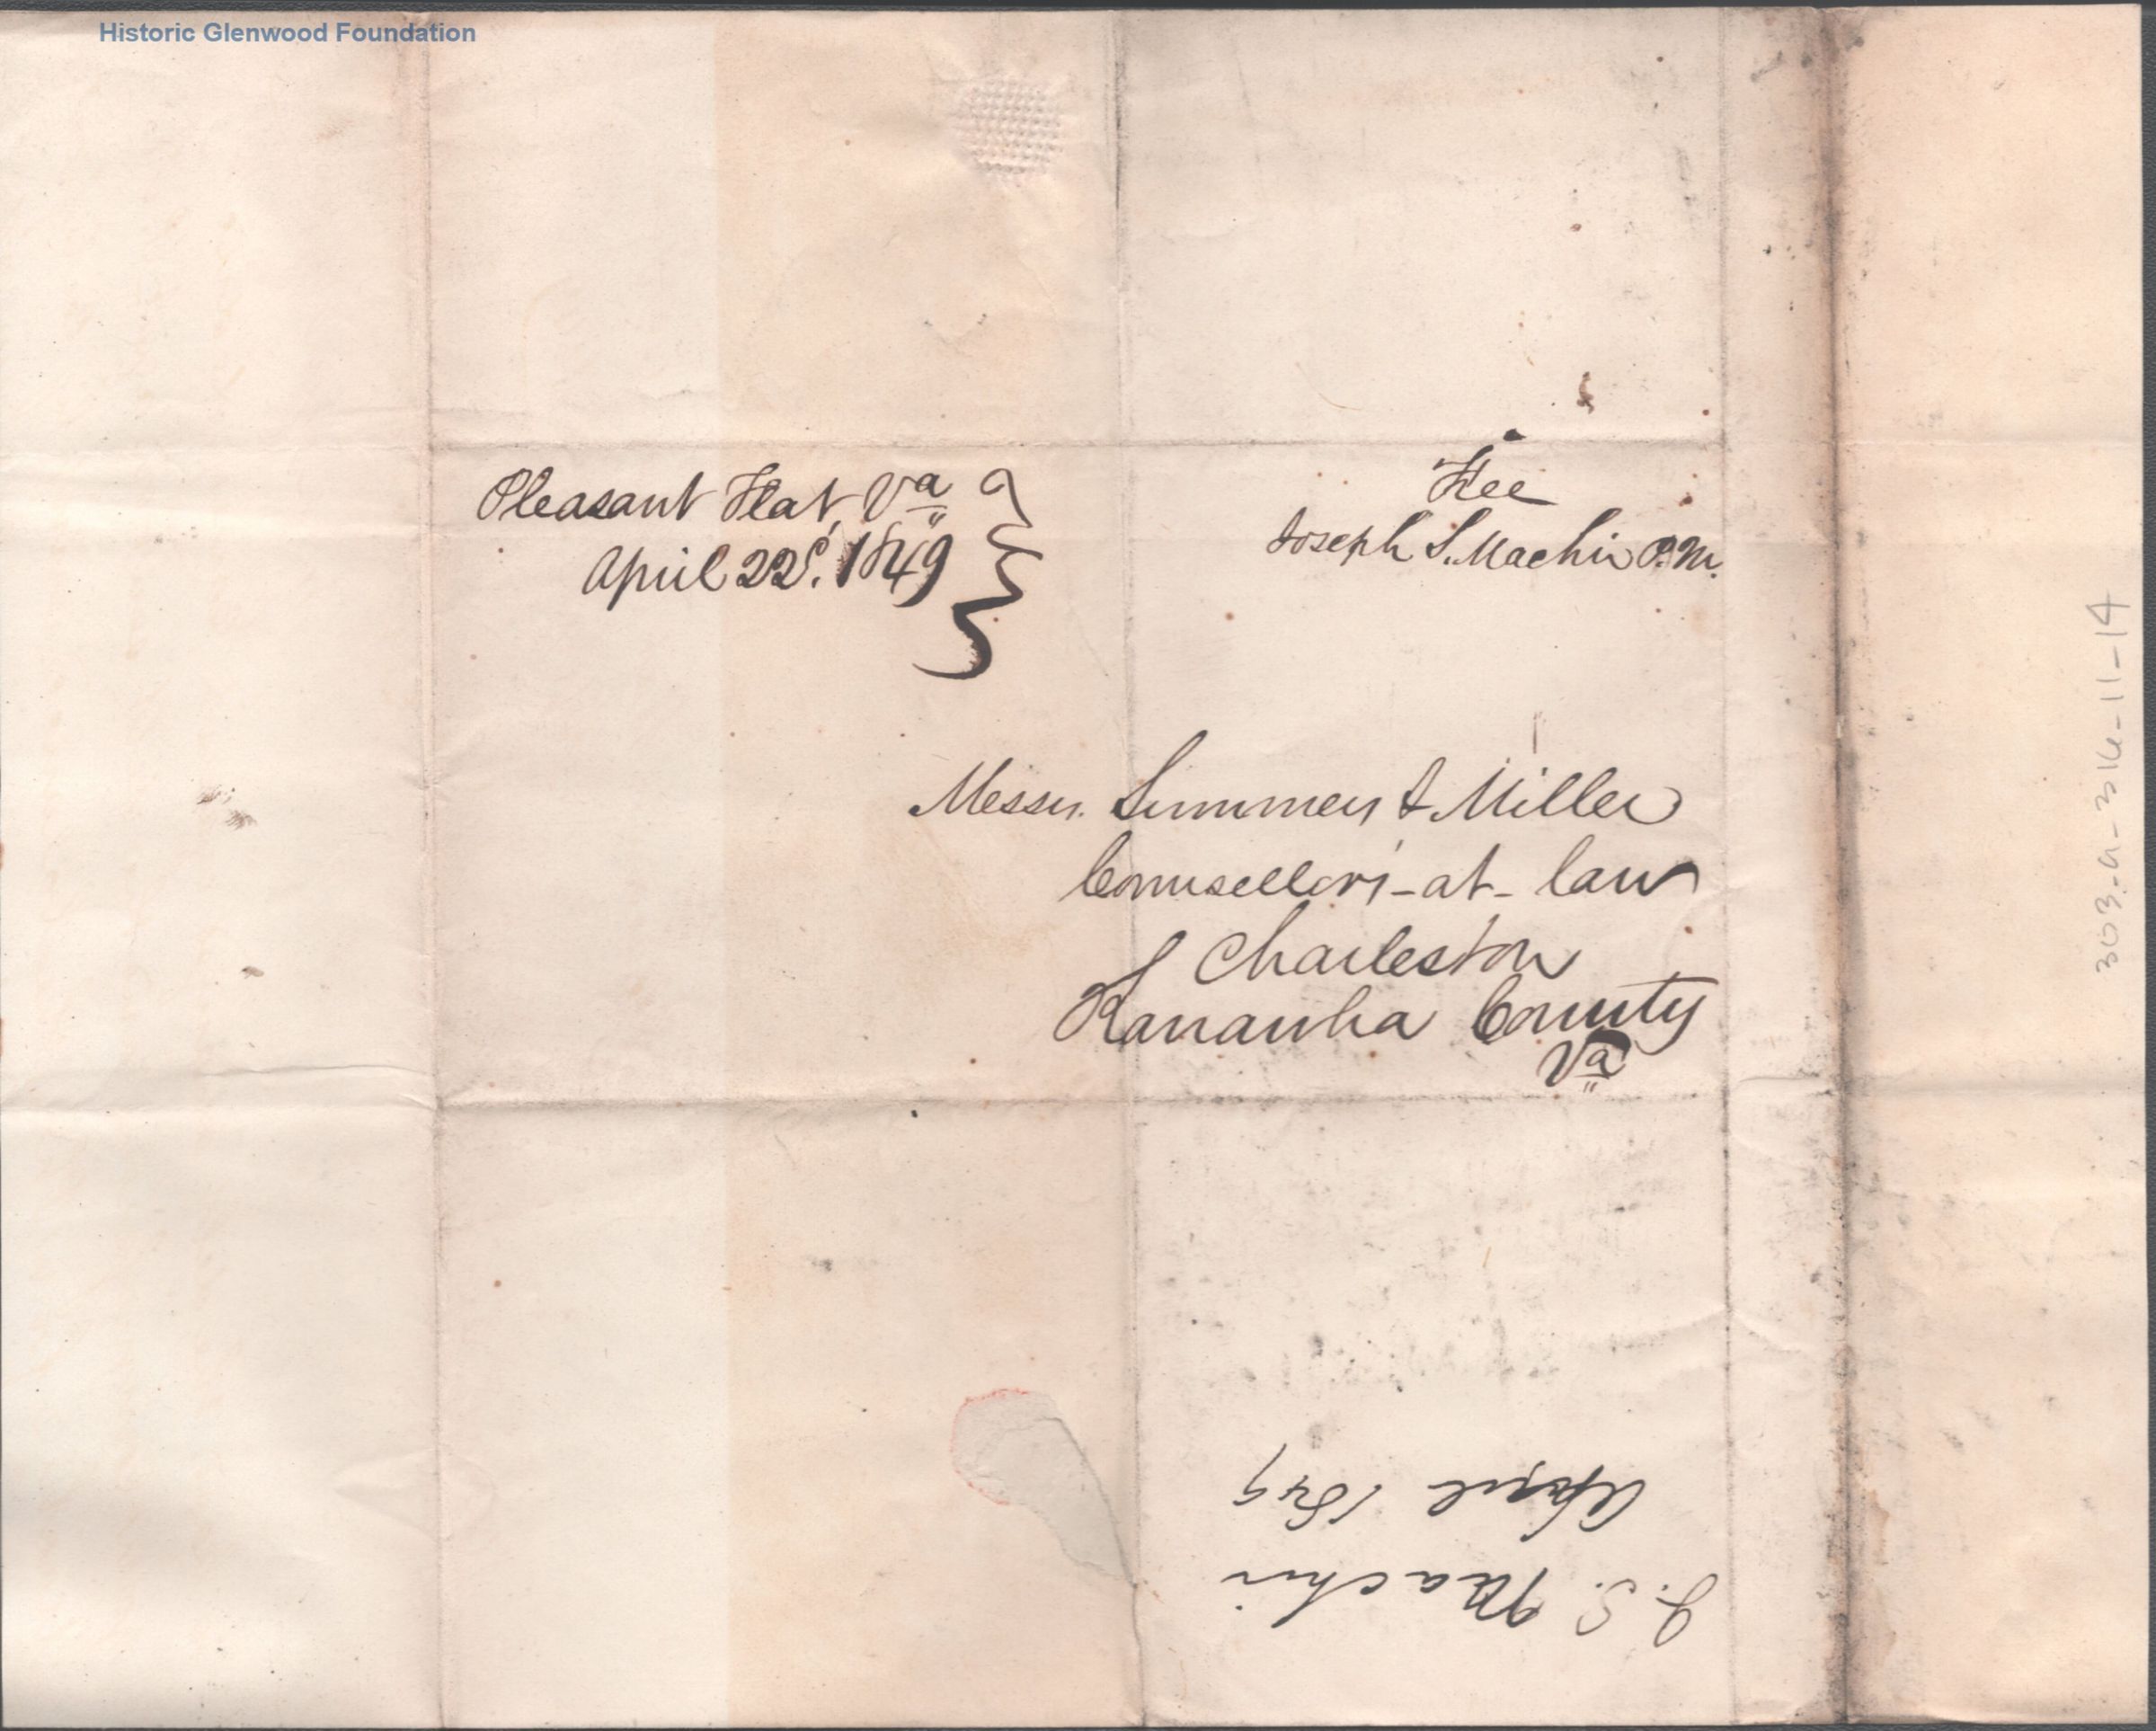 Historic Glenwood Foundation
Pleasant Flat, Va
April 22d. 1849
Free
Joseph S. Machir P.M.
Messrs. Summers & Miller
Counsellors-at-law
Charleston
Kanawha County
Va
J. S. Machir
April 1849
303-a-316-11-14